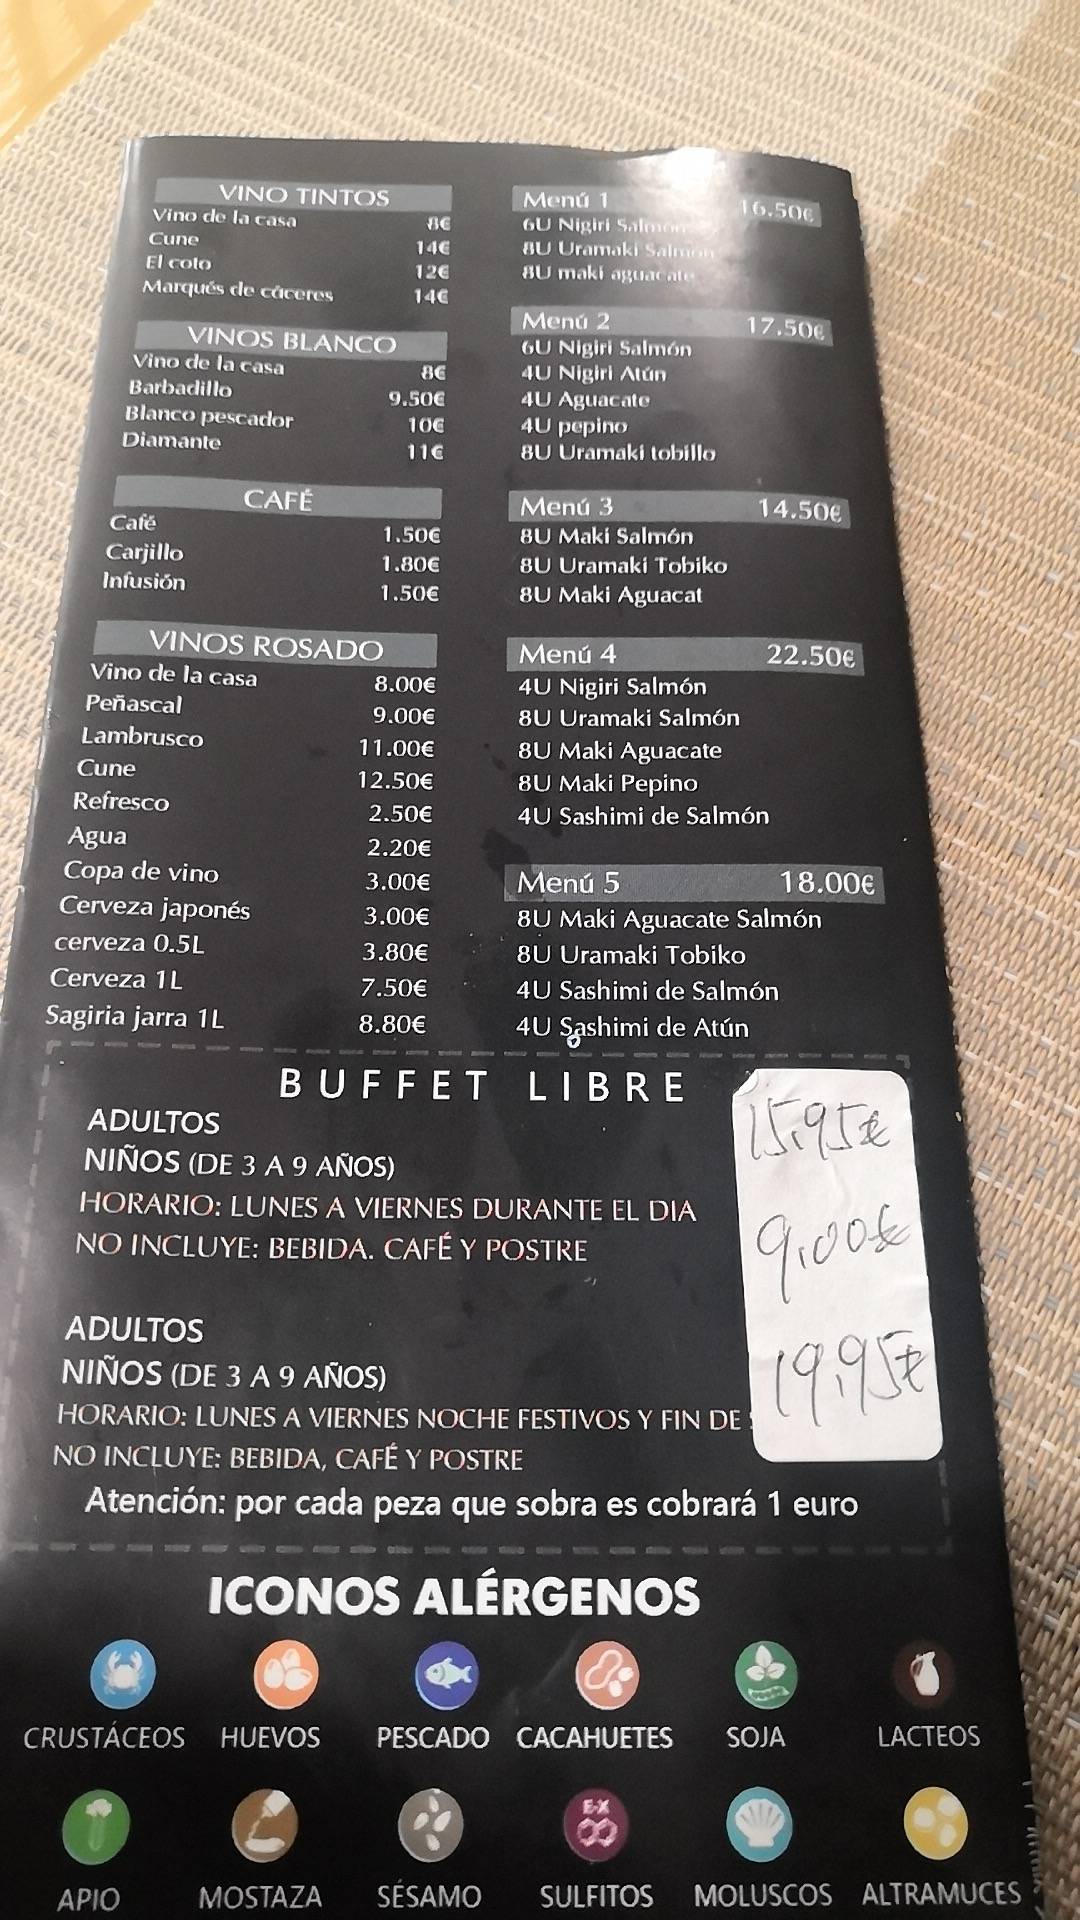 VINO TINTOS
Vino de la casa 8€
Cune 14€
El coto 12€
Marqués de cáceres 14€
VINOS BLANCO
Vino de la casa 8€
Barbadillo 9.50€
Blanco pescador 10€
Diamante 11€
CAFÉ
Café 1.50€
Carjillo 1.80€
Infusión 1.50€
VINOS ROSADO
Vino de la casa 8.00€
Peñascal 9.00€
Lambrusco 11.00€
Cune 12.50€
Refresco 2.50€
Agua 2.20€
Copa de vino 3.00€
Cerveza japonés 3.00€
cerveza 0.5L 3.80€
Cerveza 1L 7.50€
Sagiria jarra 1L 8.80€
Menú 1 16.50€
6U Nigiri Salmón
8U Uramaki Salmón
8U maki aguacate
Menú 2 17.50€
6U Nigiri Salmón
4U Nigiri Atún
4U Aguacate
4U pepino
8U Uramaki tobillo
Menú 3 14.50€
8U Maki Salmón
8U Uramaki Tobiko
8U Maki Aguacat
Menú 4 22.50€
4U Nigiri Salmón
8U Uramaki Salmón
8U Maki Aguacate
8U Maki Pepino
4U Sashimi de Salmón
Menú 5 18.00€
8U Maki Aguacate Salmón
8U Uramaki Tobiko
4U Sashimi de Salmón
4U Sashimi de Atún
BUFFET LIBRE
ADULTOS 15,95€
NIÑOS (DE 3 A 9 AÑOS)
HORARIO: LUNES A VIERNES DURANTE EL DIA
NO INCLUYE: BEBIDA. CAFÉ Y POSTRE 9,00€
ADULTOS
NIÑOS (DE 3 A 9 AÑOS) 19,95€
HORARIO: LUNES A VIERNES NOCHE FESTIVOS Y FIN DE
NO INCLUYE: BEBIDA, CAFÉ Y POSTRE
Atención: por cada peza que sobra es cobrará 1 euro
ICONOS ALÉRGENOS
CRUSTÁCEOS HUEVOS PESCADO CACAHUETES SOJA LACTEOS
E-X
APIO MOSTAZA SÉSAMO SULFITOS MOLUSCOS ALTRAMUCES